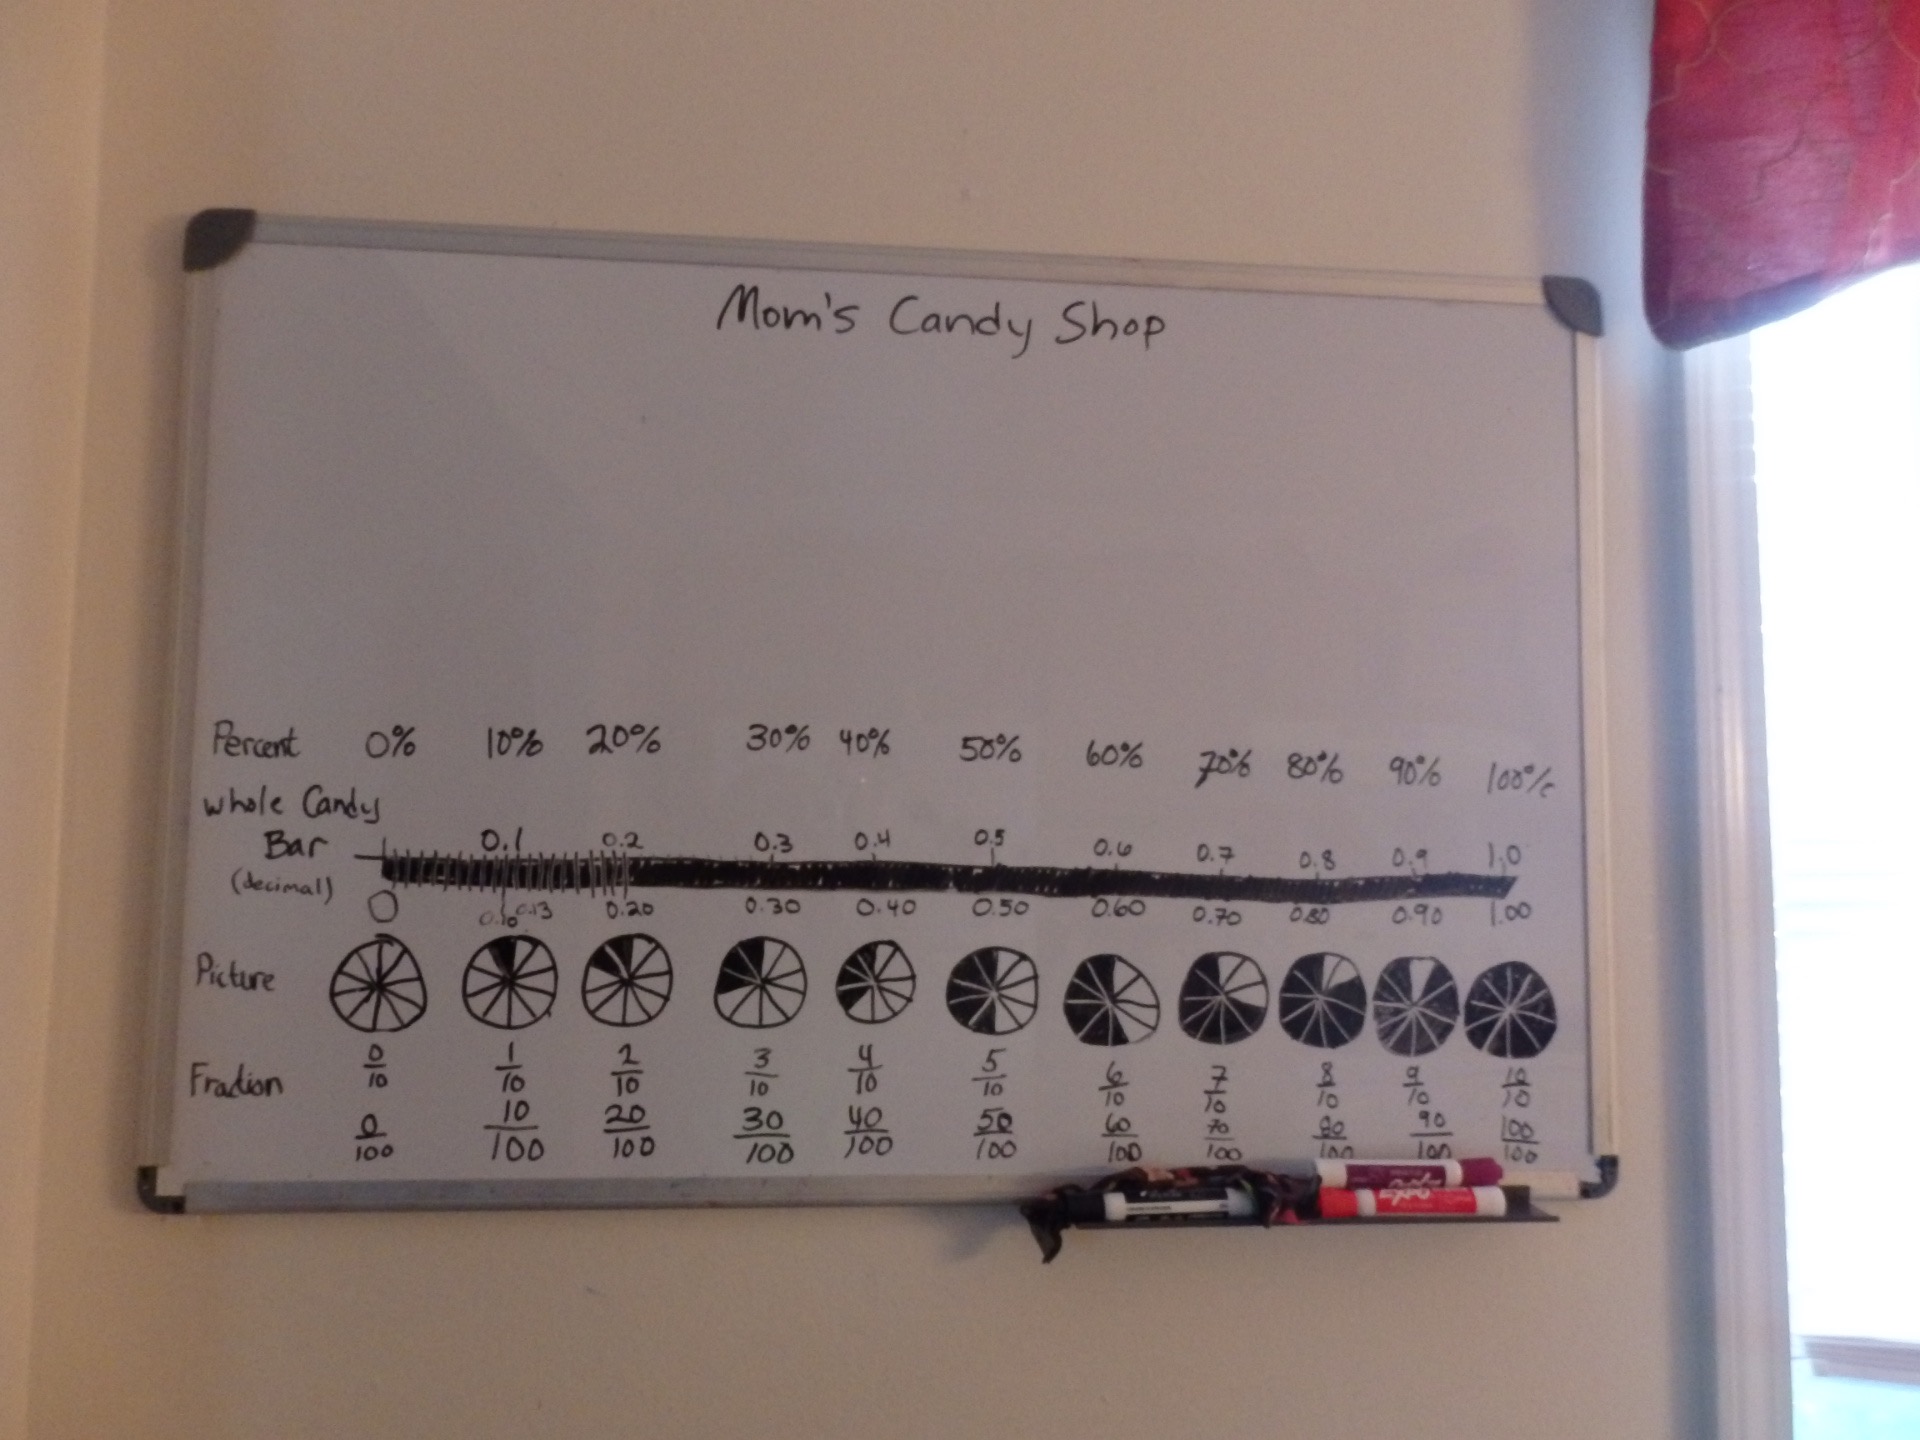 Mom's Candy Shop
Percent 0% 10% 20% 30% 40% 50% 60% 70% 80% 90% 100%
whole Candy
Bar 0.1 0.2 0.3 0.4 0.5 0.6 0.7 0.8 0.9 1.0
(decimal)
0 0.10 0.13 0.20 0.30 0.40 0.50 0.60 0.70 0.80 0.90 1.00
Picture
Fraction 0/10 1/10 2/10 3/10 4/10 5/10 6/10 7/10 8/10 9/10 10/10
0/100 10/100 20/100 30/100 40/100 50/100 60/100 70/100 80/100 90/100 100/100
EXPO